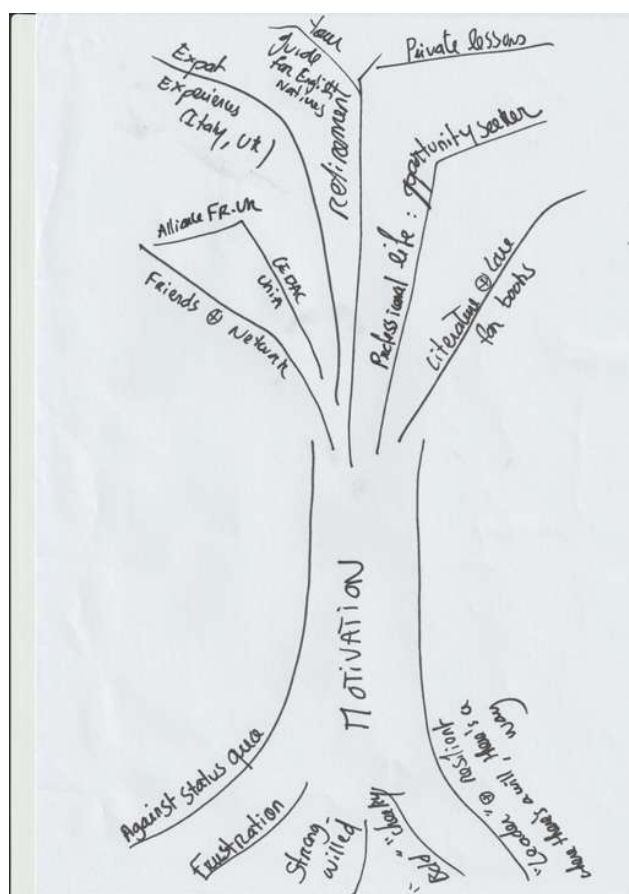 Your
guide
for English
Natives
Private lessons
Expat
Experiences
(Italy, UK)
Retirement
Professional life: opportunity seeker
Alliance FR-UK
CEDAC
Unia
Friends ⊕ Network
Literature ⊕ Love
for books
MOTIVATION
Against status quo
Frustration
Strong-
willed
"Bold"
"Leader" ⊕
where there's a will, there's a
way